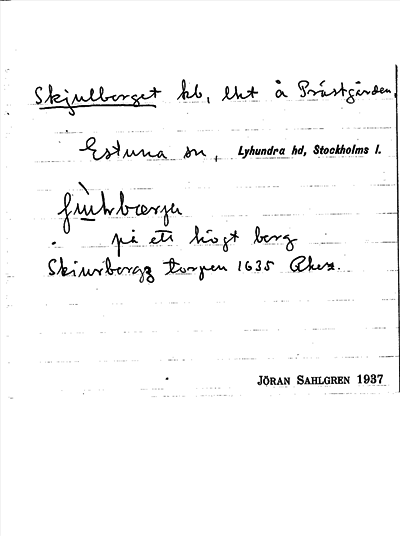 Skjulberget hb, lht å Prästgården,
Estuna sn, Lyhundra hd, Stockholms l.
på ett högt berg
Skiurbergz torpen 1635
JÖRAN SAHLGREN 1937